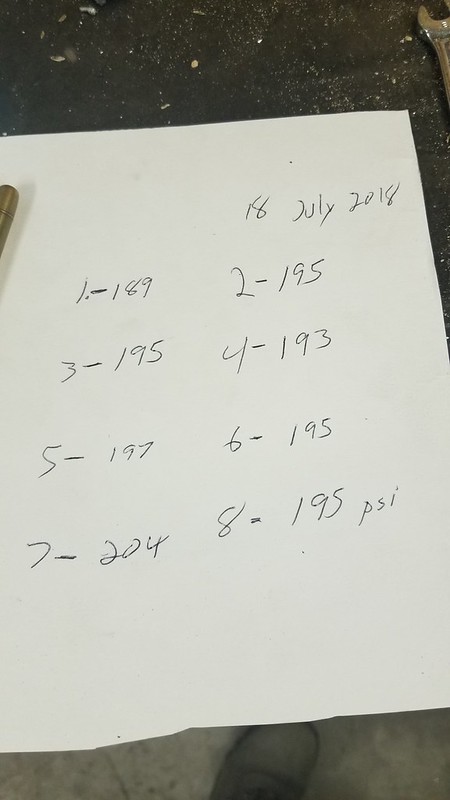 18 July 2018
1-189 2-195
3-195 4-193
5-197 6-195
7-204 8-195 psi